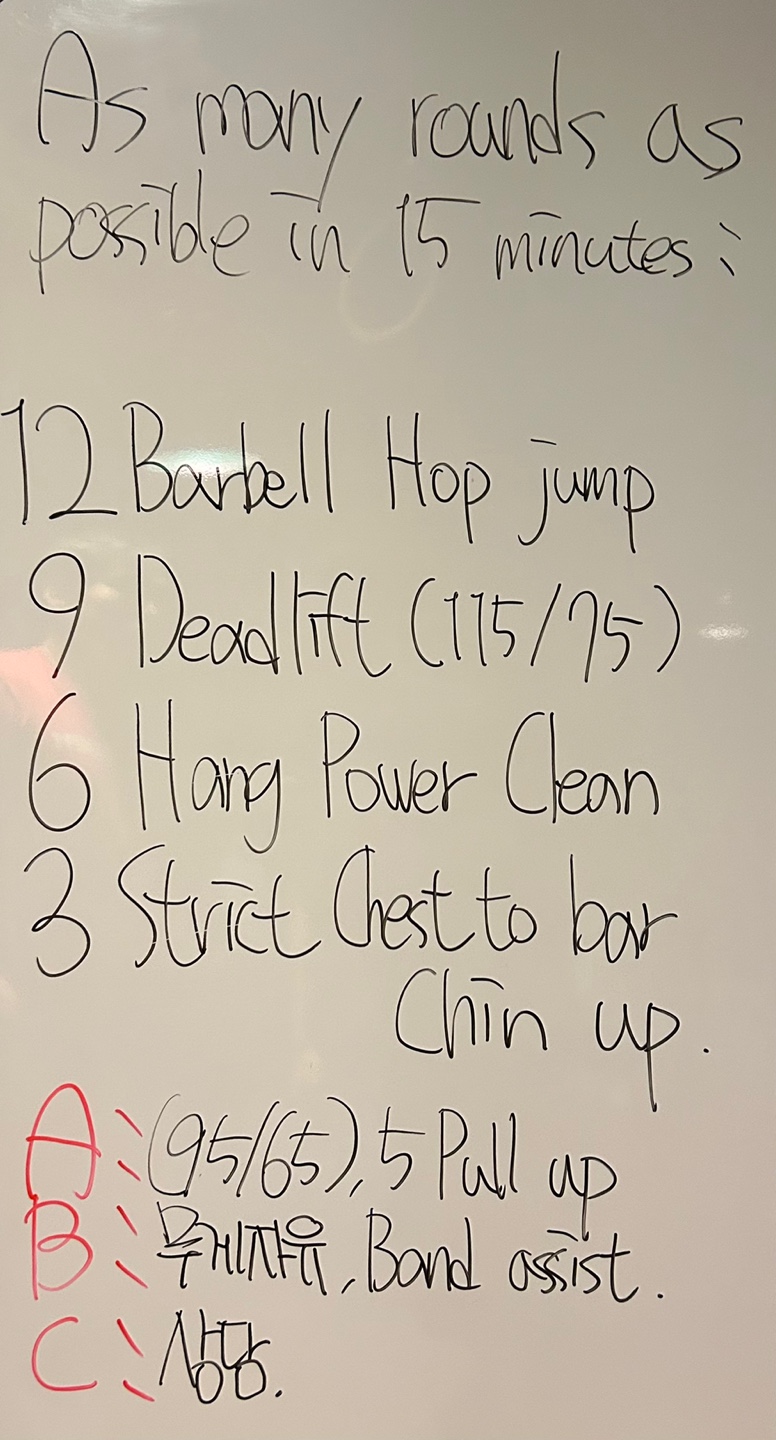 As many rounds as
possible in 15 minutes:
12 Barbell Hop jump
9 Deadlift (115/75)
6 Hang Power Clean
3 Strict Chest to bar
Chin up.
A: (95/65), 5 Pull up
B: 무게자유, Band assist.
C: 상담.